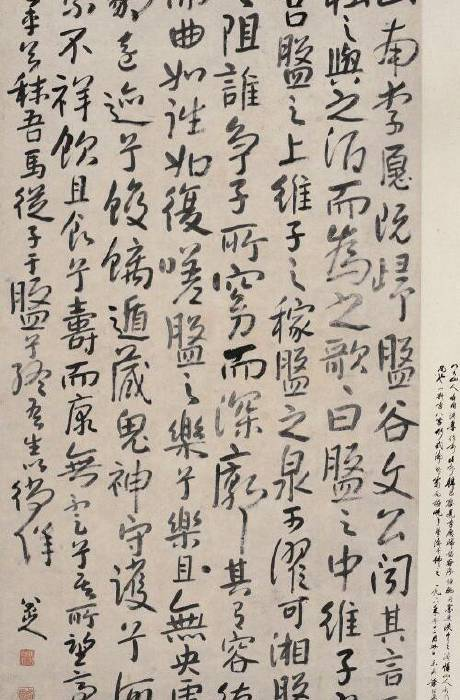 山南李愿既歸盤谷文公聞其言
壯之與之酒而為之歌曰盤之中維子
宮盤之土維子之稼盤之泉可濯可湘盤
之阻誰爭子所窈而深廓其有容繚
而曲如往如復嗟盤之樂兮樂且無央虎
豹遠迹兮蛟螭遁藏鬼神守護兮呵
禁不祥飲且食兮壽而康無不足兮奚所望膏
車兮秣吾馬從子于盤兮終吾生以徜徉
八大山人